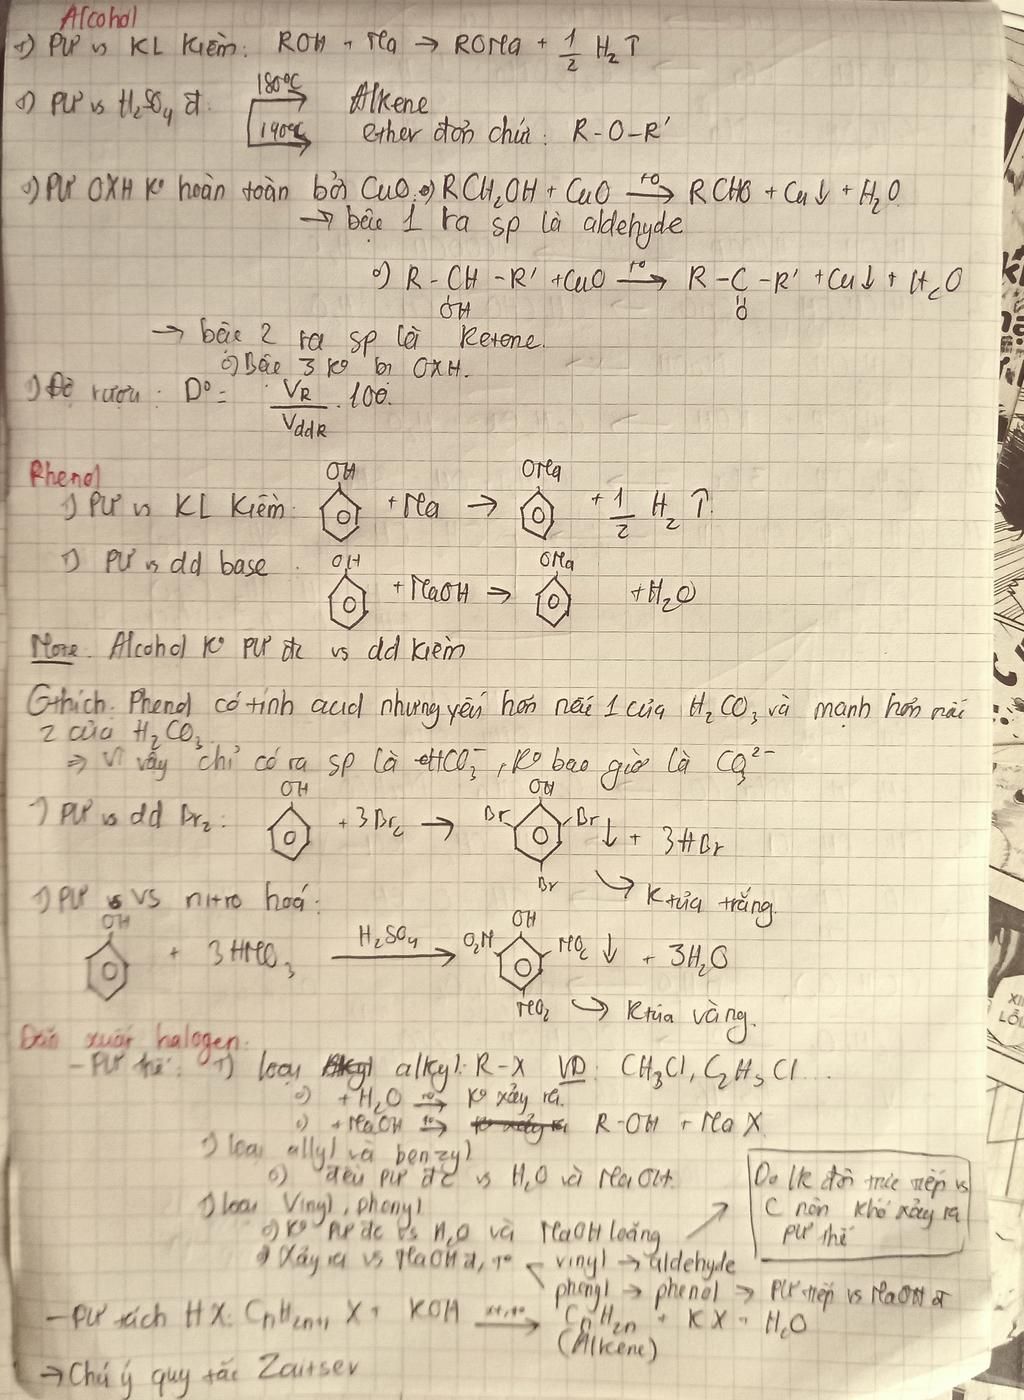 Alcohol
+) PƯ vs KL Kiềm: ROH + Na → RONa + 1/2 H₂ ↑
+) PƯ vs H₂SO₄ đ: 180°C → Alkene
140°C → ether đơn chức: R-O-R'
+) PƯ OXH K° hoàn toàn bởi CuO. o) RCH₂OH + CuO →(t°) RCHO + Cu↓ + H₂O
→ bậc 1 ra sp là aldehyde
o) R-CH-R' + CuO →(t°) R-C-R' + Cu↓ + H₂O
OH O
→ bậc 2 ra sp là Ketone.
o) Bậc 3 K° bị OXH.
+) Độ rượu: D° = V_R / V_ddR . 100.
Phenol
+) PƯ vs KL Kiềm: OH + Na → ONa + 1/2 H₂ ↑
+) PƯ vs dd base: OH + NaOH → ONa + H₂O
Note. Alcohol K° PƯ đc vs dd Kiềm
Gthích. Phenol có tính acid nhưng yếu hơn nấc 1 của H₂CO₃ và mạnh hơn nấc
2 của H₂CO₃.
⇒ Vì vậy chỉ có ra sp là HCO₃⁻, K° bao giờ là CO₃²⁻
+) PƯ vs dd Br₂: OH + 3Br₂ → OH Br Br Br ↓ + 3HBr
↪ Ktủa trắng.
+) PƯ vs nitro hoá:
OH + 3HNO₃ →(H₂SO₄) OH O₂N NO₂ NO₂ ↓ + 3H₂O
↪ Ktủa vàng.
Dẫn xuất halogen:
- PƯ thế: +) loại alkyl: R-X VD: CH₃Cl, C₂H₅Cl...
o) + H₂O →(t°) K° xảy ra.
o) + NaOH →(t°) R-OH + NaX
+) loại allyl và benzyl
o) đều PƯ đc vs H₂O và NaOH.
+) loại Vinyl, phenyl
o) K° PƯ đc vs H₂O và NaOH loãng
Do lk đôi trực tiếp vs
C nên khó xảy ra
PƯ thế
o) Xảy ra vs NaOH đ, t° < vinyl → aldehyde
phenyl → phenol → PƯ tiếp vs NaOH đ
- PƯ tách HX: CnH2n+1 X + KOH → CnH2n + KX + H₂O
(Alkene)
→ Chú ý quy tắc Zaitsev